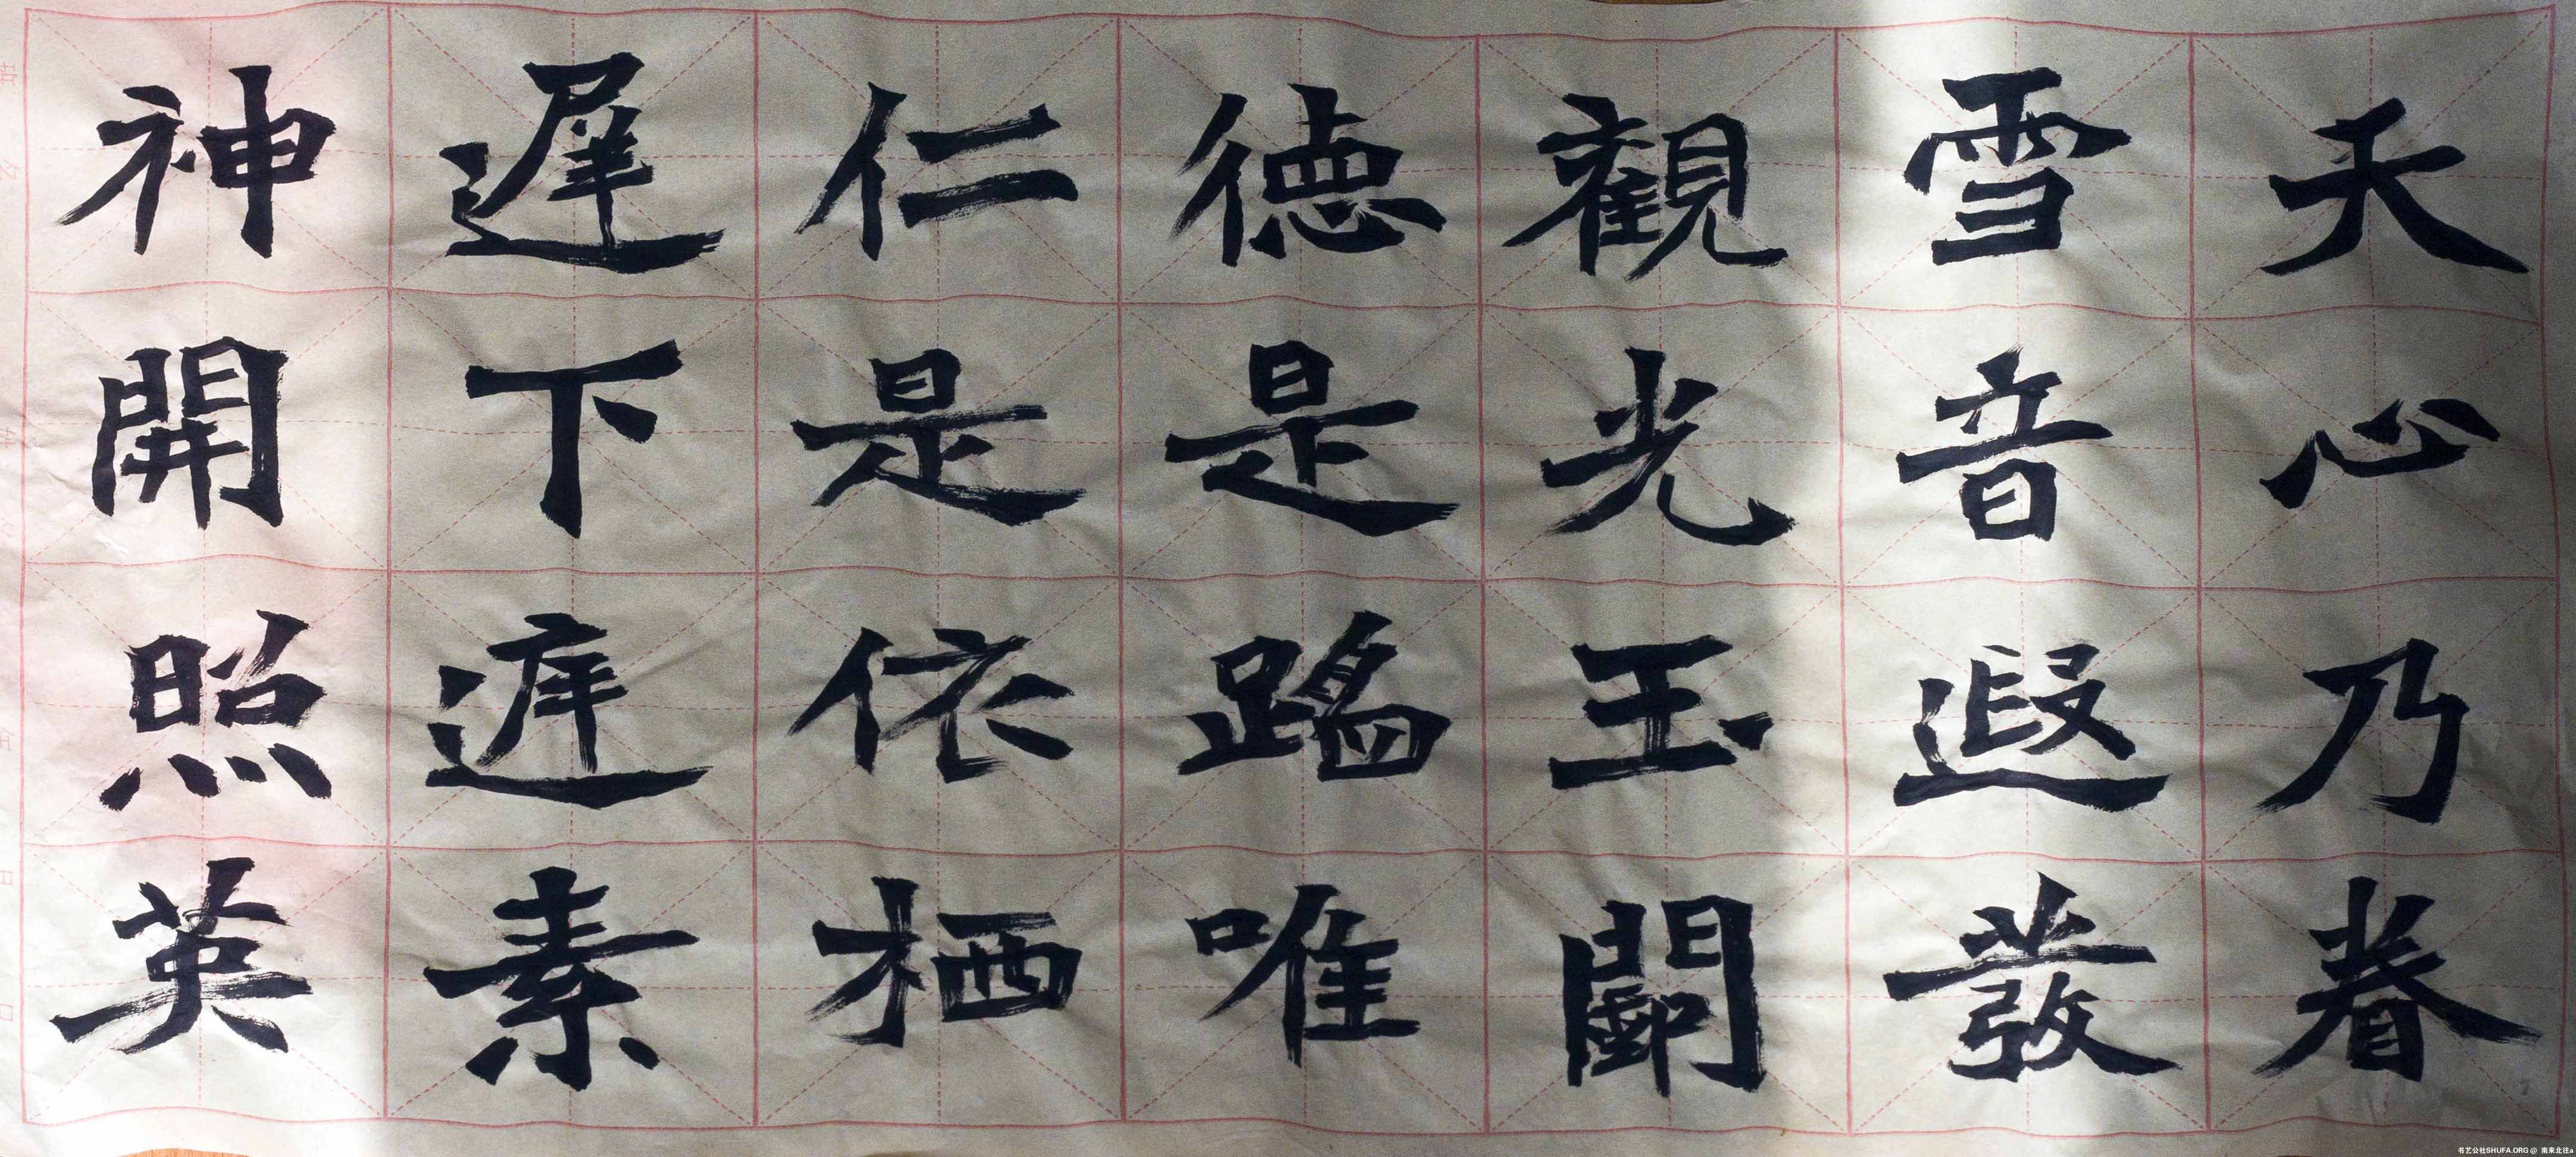 天心乃眷
雪音遐發
觀光玉闕
德是蹈唯
仁是依栖
遲下庠素
神開照英
书艺公社SHUFA.ORG @ 南来北往